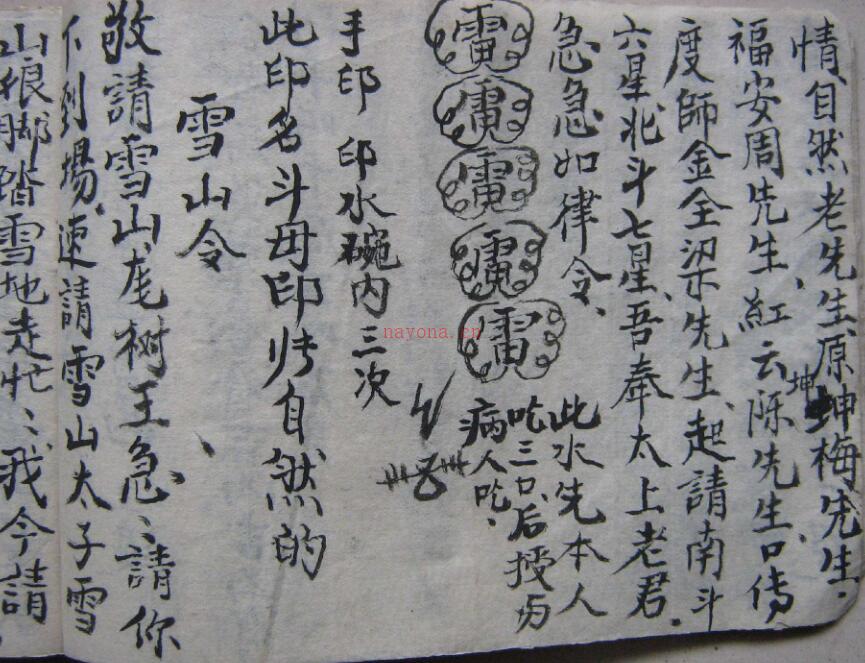 情自然老先生、原坤梅先生、
坤
福安周先生、紅云陈先生口傳
度師金全梁先生、起請南斗
六星北斗七星、吾奉太上老君
急急如律令、
此水先本人
吃三口、后授与
病人吃、
手印 印水碗内三次
此印名斗母印 自然的
雪山令
敬請雪山 树王急、、請你
到場、速請雪山太子雪
山狼脚踏雪地走忙、、我今請
nayona.cn